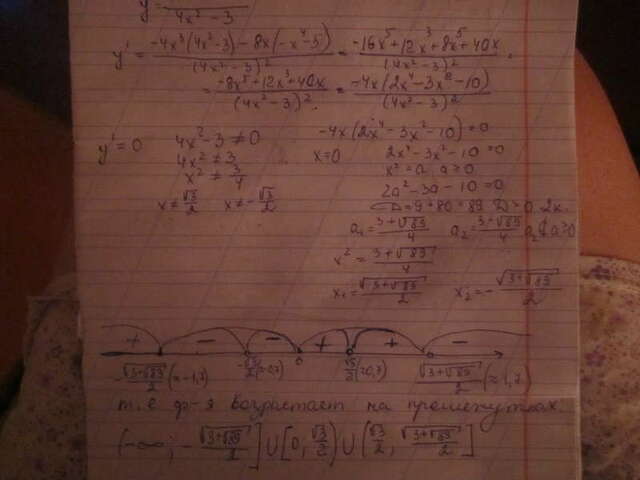 y = ———
4x² - 3
y' = (-4x³(4x² - 3) - 8x(-x⁴ - 5)) / (4x² - 3)² = (-16x⁵ + 12x³ + 8x⁵ + 40x) / (4x² - 3)² .
= (-8x⁵ + 12x³ + 40x) / (4x² - 3)² = (-4x(2x⁴ - 3x² - 10)) / (4x² - 3)²
y' = 0 4x² - 3 ≠ 0 -4x(2x⁴ - 3x² - 10) = 0
4x² ≠ 3 x = 0 2x⁴ - 3x² - 10 = 0
x² ≠ 3/4 x² = a, a ≥ 0
x ≠ √3/2 x ≠ -√3/2 2a² - 3a - 10 = 0
D = 9 + 80 = 89 D > 0 2к.
a₁ = (3 + √89)/4 a₂ = (3 + √89)/4 a₂ ∉ a ≥ 0
x² = (3 + √89)/4
x₁ = √(3 + √89)/2 x₂ = -√(3 + √89)/2
+ - - + + -
-√(3 + √89)/2 (≈ -1,7) -√3/2 (≈ 0,7) 0 √3/2 (≈ 0,7) √(3 + √89)/2 (≈ 1,7)
т.е ф-я возрастает на промежутках:
(-∞; -√(3 + √89)/2] ∪ [0, √3/2) ∪ (√3/2, √(3 + √89)/2]